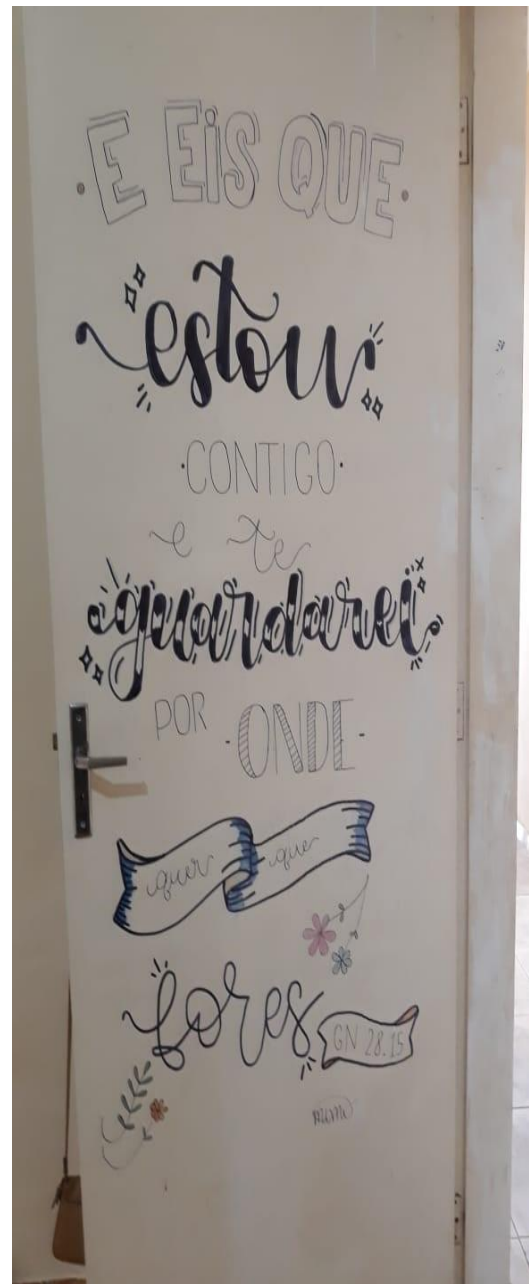 E EiS QUE
estou
CONTIGO
e te
guardarei
POR ONDE
quer que
fores
GN 28.15